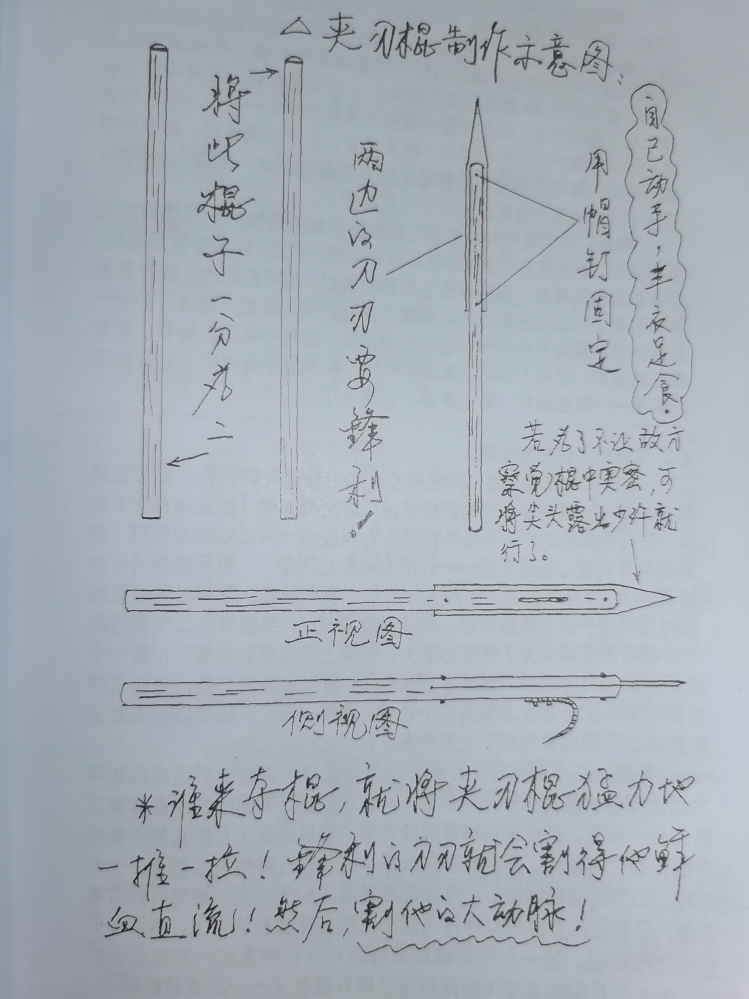 △夹刃棍制作示意图：
将此棍子一分为二
两边的刀刃要锋利。
用帽钉固定
自己动手，丰衣足食。
若为了不让敌方
察觉棍中奥密，可
将尖头露出少许就
行了。
正视图
侧视图
*谁来夺棍，就将夹刃棍猛力地
一推一拉！锋利的刀刃就会割得他鲜
血直流！然后，割他的大动脉！